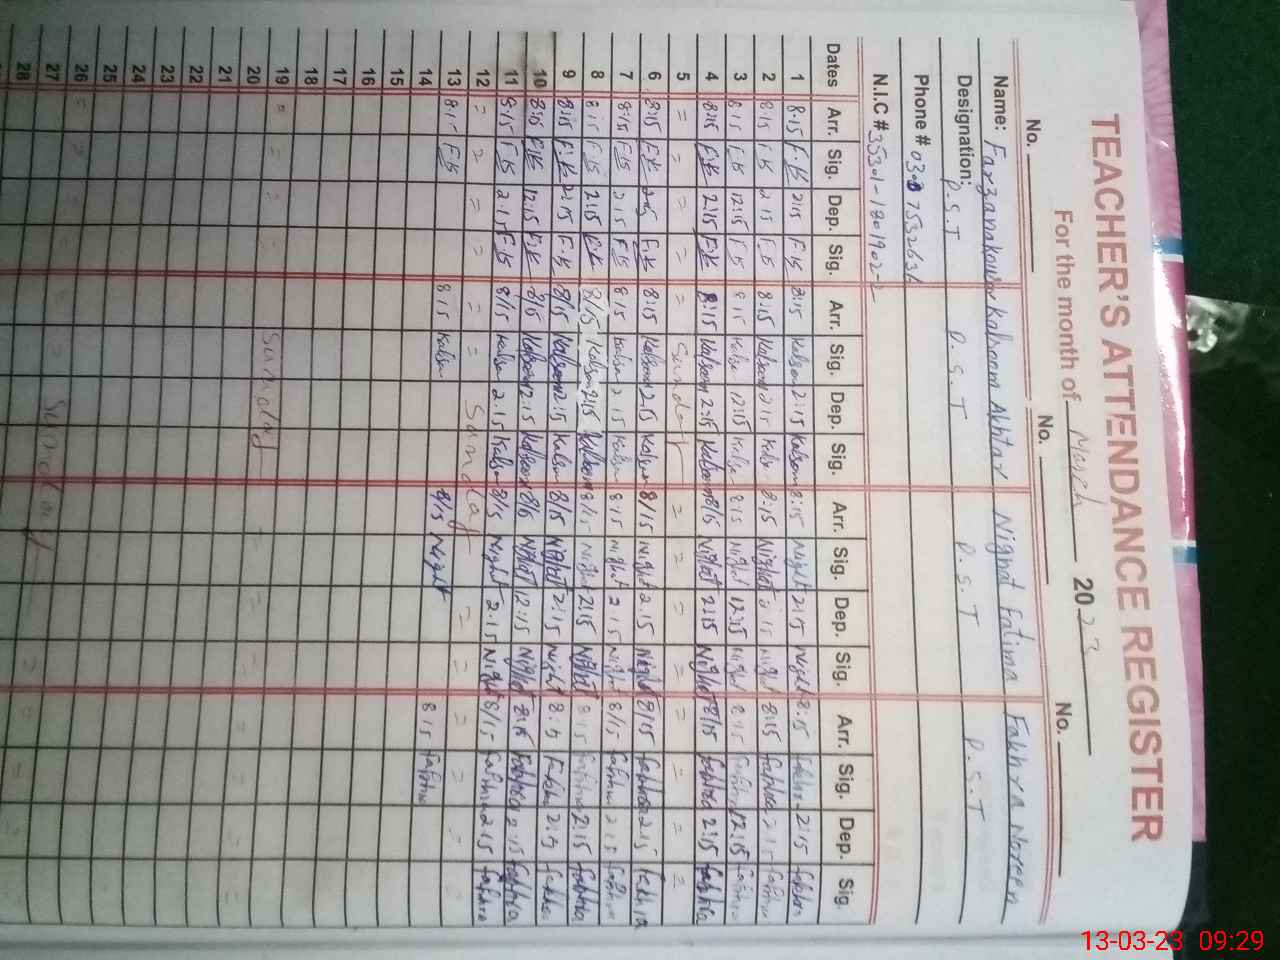 TEACHER'S ATTENDANCE REGISTER
For the month of March 2023
No. No. No.
Name: Farzana kausar Kalsoom Akhtar Nighat Fatima Fakhra Noreen
Designation: P.S.T P.S.T P.S.T P.S.T
Phone #
N.I.C #
Dates Arr. Sig. Dep. Sig. Arr. Sig. Dep. Sig. Arr. Sig. Dep. Sig. Arr. Sig. Dep. Sig.
1 8:15 F.K 2:15 F.K 8:15 Kalsom 2:15 Kalsom 8:15 Night 2:15 Night 8:15 Fakhra 2:15 Fakhra
2 8:15 F.K 2:15 F.K 8:15 Kalsoom 2:15 8:15 Nighat 2:15 Night 8:15 Fakhra 2:15 Fakhra
3 8:15 F.K 12:15 F.K 8:15 12:15 8:15 Night 12:15 Night 8:15 Fakhra 12:15 Fakhra
4 8:15 F.K 2:15 F.K 8:15 Kalsoom 2:15 Kalsoom 8/15 Nighat 2:15 Nighat 8/15 Fakhra 2:15 Fakhra
5 = = = = = Sunday = = = = = = =
6 8:15 F.K 2:15 F.K 8:15 Kalsoom 2:15 Kalsom 8/15 Night 2.15 Night 8/15 Fakhra 2:15 Fakhra
7 8:15 F.K 2:15 F.K 8:15 Kalsom 2:15 Kalsom 8:15 Night 2:15 Night 8/15 Fakhra 2:15 Fakhra
8 8:15 F.K 2:15 F.K 8/15 Kalsom 2:15 Kalsoom 8/15 Night 2:15 Nighat 8:15 Fakhra 2:15 Fakhra
9 8:15 F.K 2:15 F.K 8/15 Kalsoom 2:15 Kalsom 8/15 Nighat 2:15 Night 8:15 Fakhra 2:15 Fakhra
10 8:15 F.K 12:15 F.K 8/15 Kalsoom 12:15 Kalsoom 8/15 Nighat 12:15 Nighat 8:15 Fakhra 2:15 Fakhra
11 8:15 F.K 2:15 F.K 8/15 Kalsom 2.15 Kalsom 8/15 Night 2.15 Night 8/15 Fakhra 2:15 Fakhra
12 = = = = = = Sunday = = = = =
13 8:15 F.K 8:15 Kalsom 8/15 Night 8:15 Fakhra
14
15
16
17
18
19 = = = = Sunday = = = =
20
21
22
23
24
25
26 = = = = = = Sunday = = = =
27
28
13-03-23 09:29